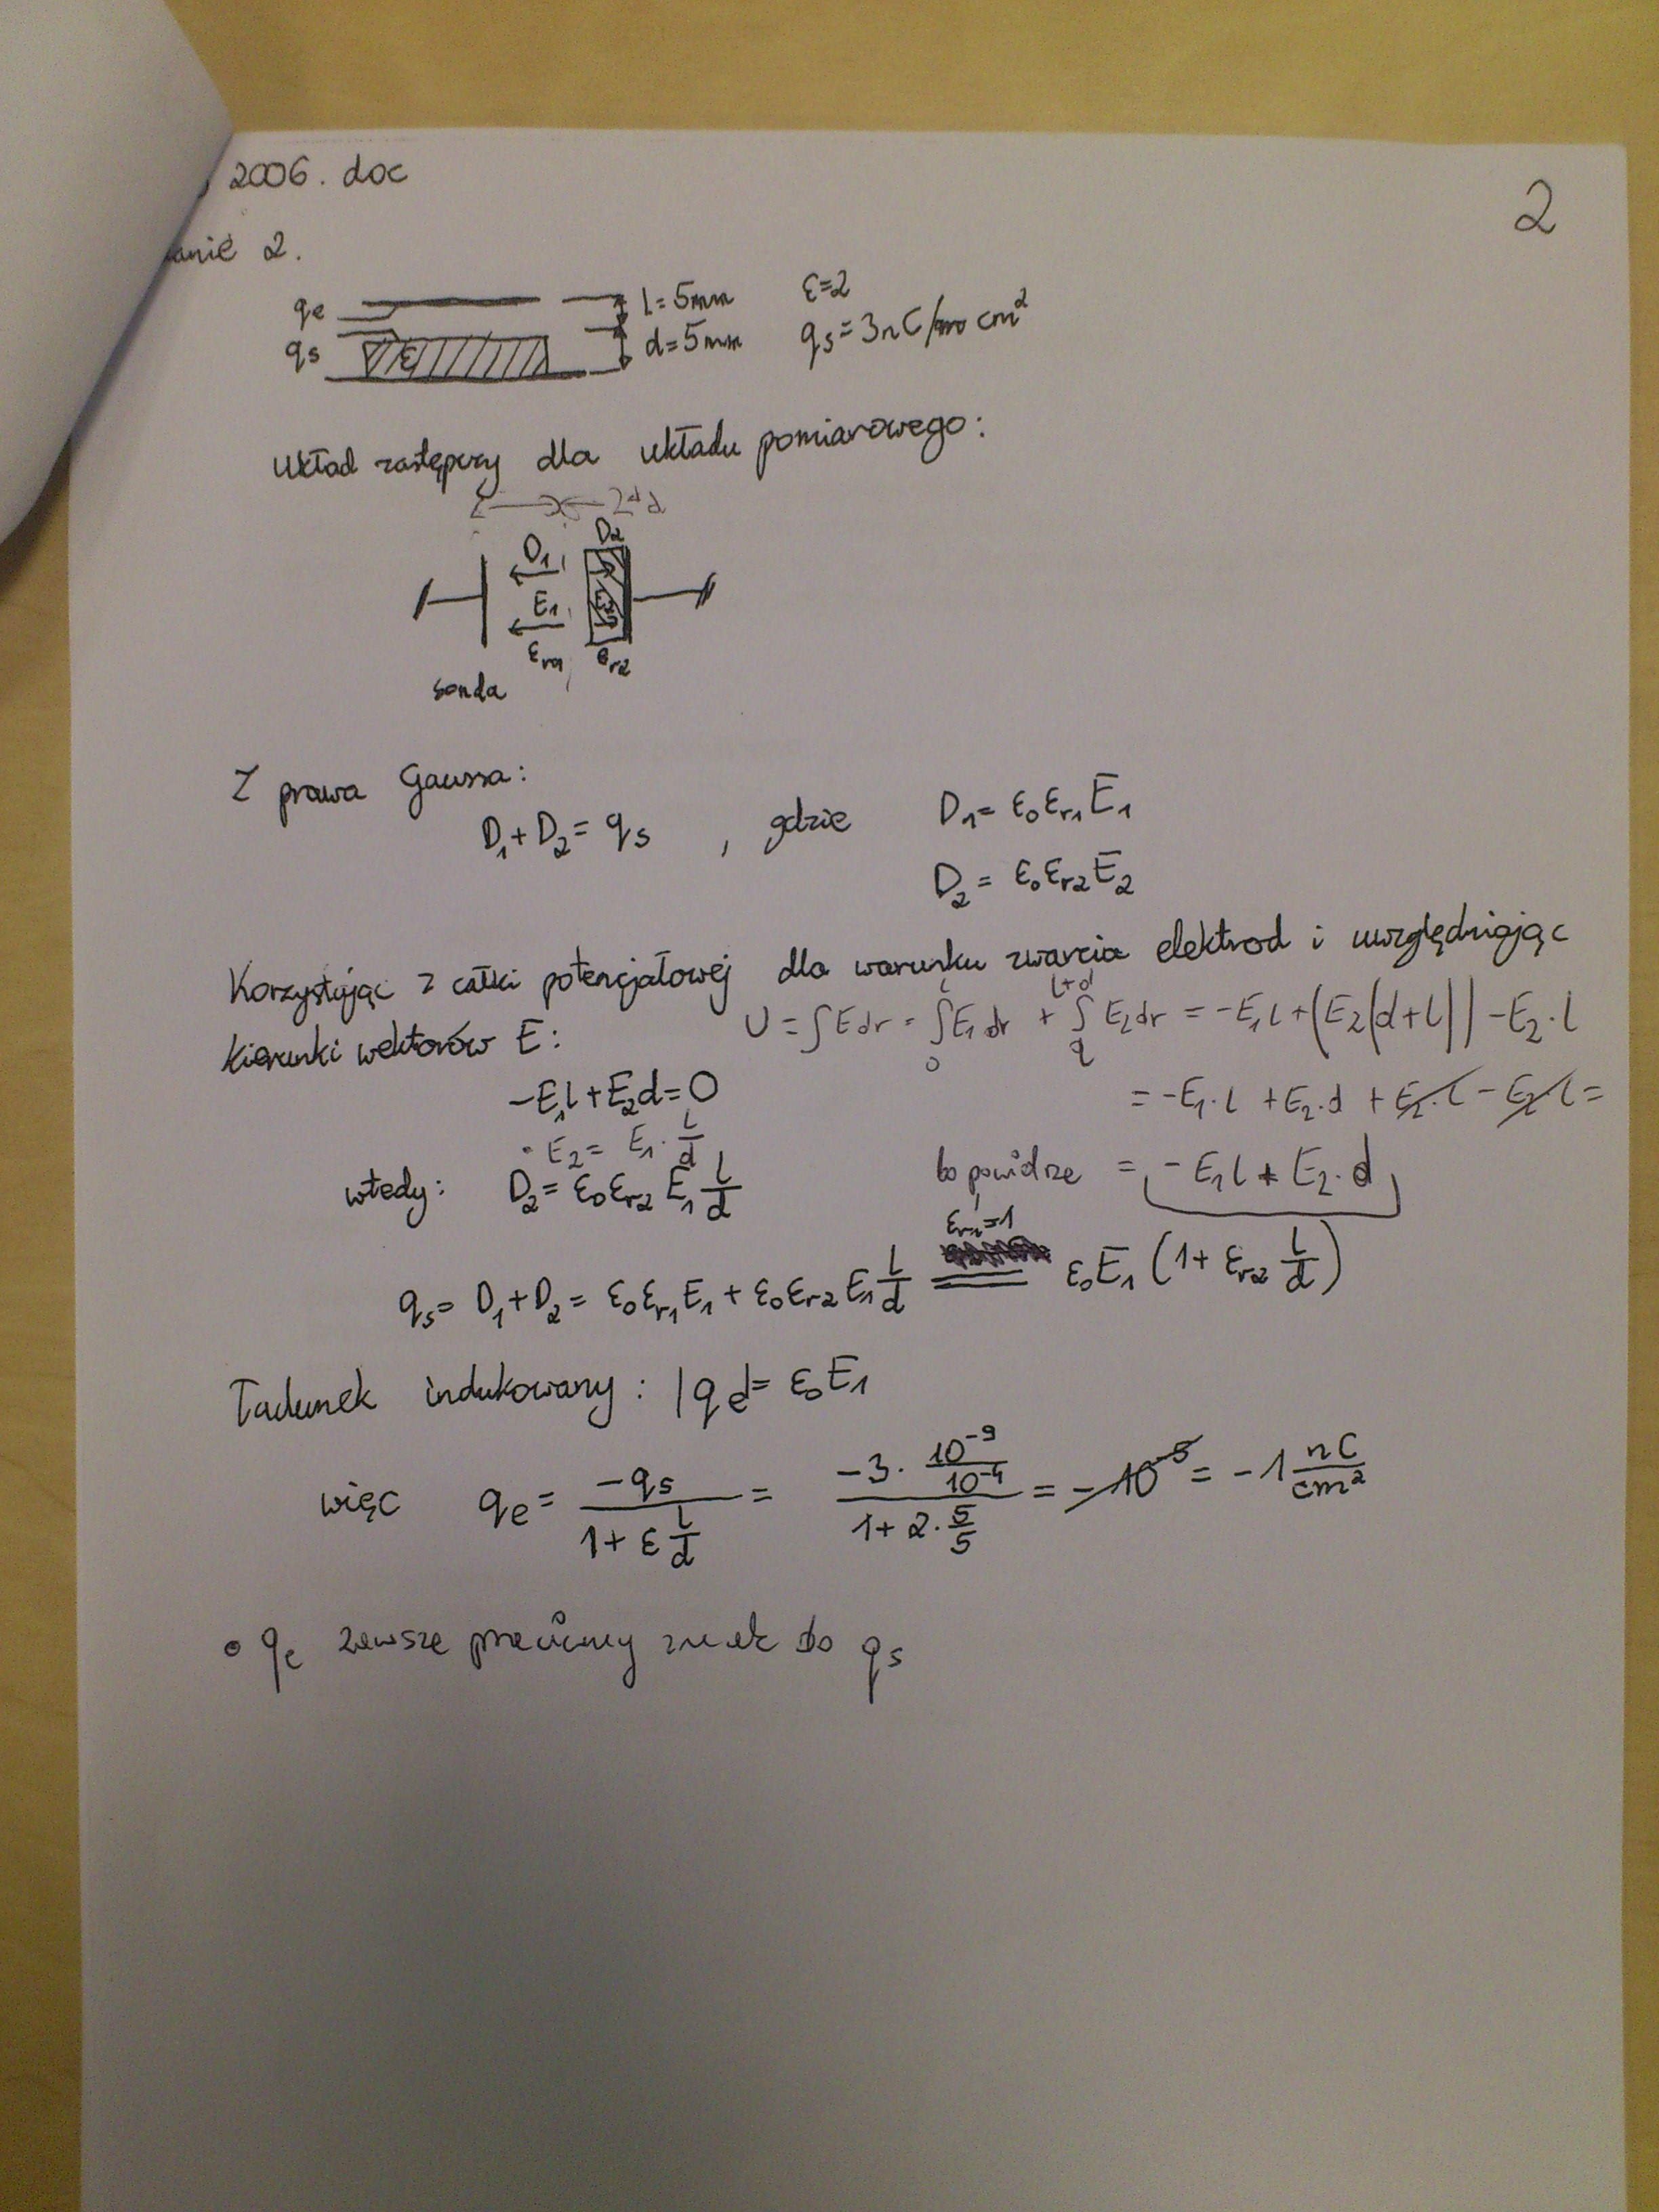 2006.doc
2
anie 2.
qe l=5mm ε=2
qs ε d=5mm qs=3nC/cm²
Układ zastępczy dla układu pomiarowego:
D1 D2
E1 E2
εr1 εr2
sonda
Z prawa Gaussa:
D1+D2=qs , gdzie D1=ε0εr1E1
D2=ε0εr2E2
Korzystając z całki potencjałowej dla warunku zwarcia elektrod i uwzględniając
kierunki wektorów E: U=∫Edr=∫E1dr+∫E2dr=-E1l+(E2(d+l))-E2·l
-E1l+E2d=0 =-E1·l+E2·d+E2·l-E2·l=
E2=E1·l/d
bo powidrze =-E1l+E2·d
wtedy: D2=ε0εr2E1 l/d
εr1=1
qs=D1+D2=ε0εr1E1+ε0εr2E1 l/d = ε0E1(1+εr2 l/d)
Ładunek indukowany: |qe|=ε0E1
więc qe=-qs/(1+ε l/d)=(-3·10⁻⁹/10⁻⁴)/(1+2·5/5)=-10⁻⁵=-1 nC/cm²
• qe zawsze przeciwny znak do qs